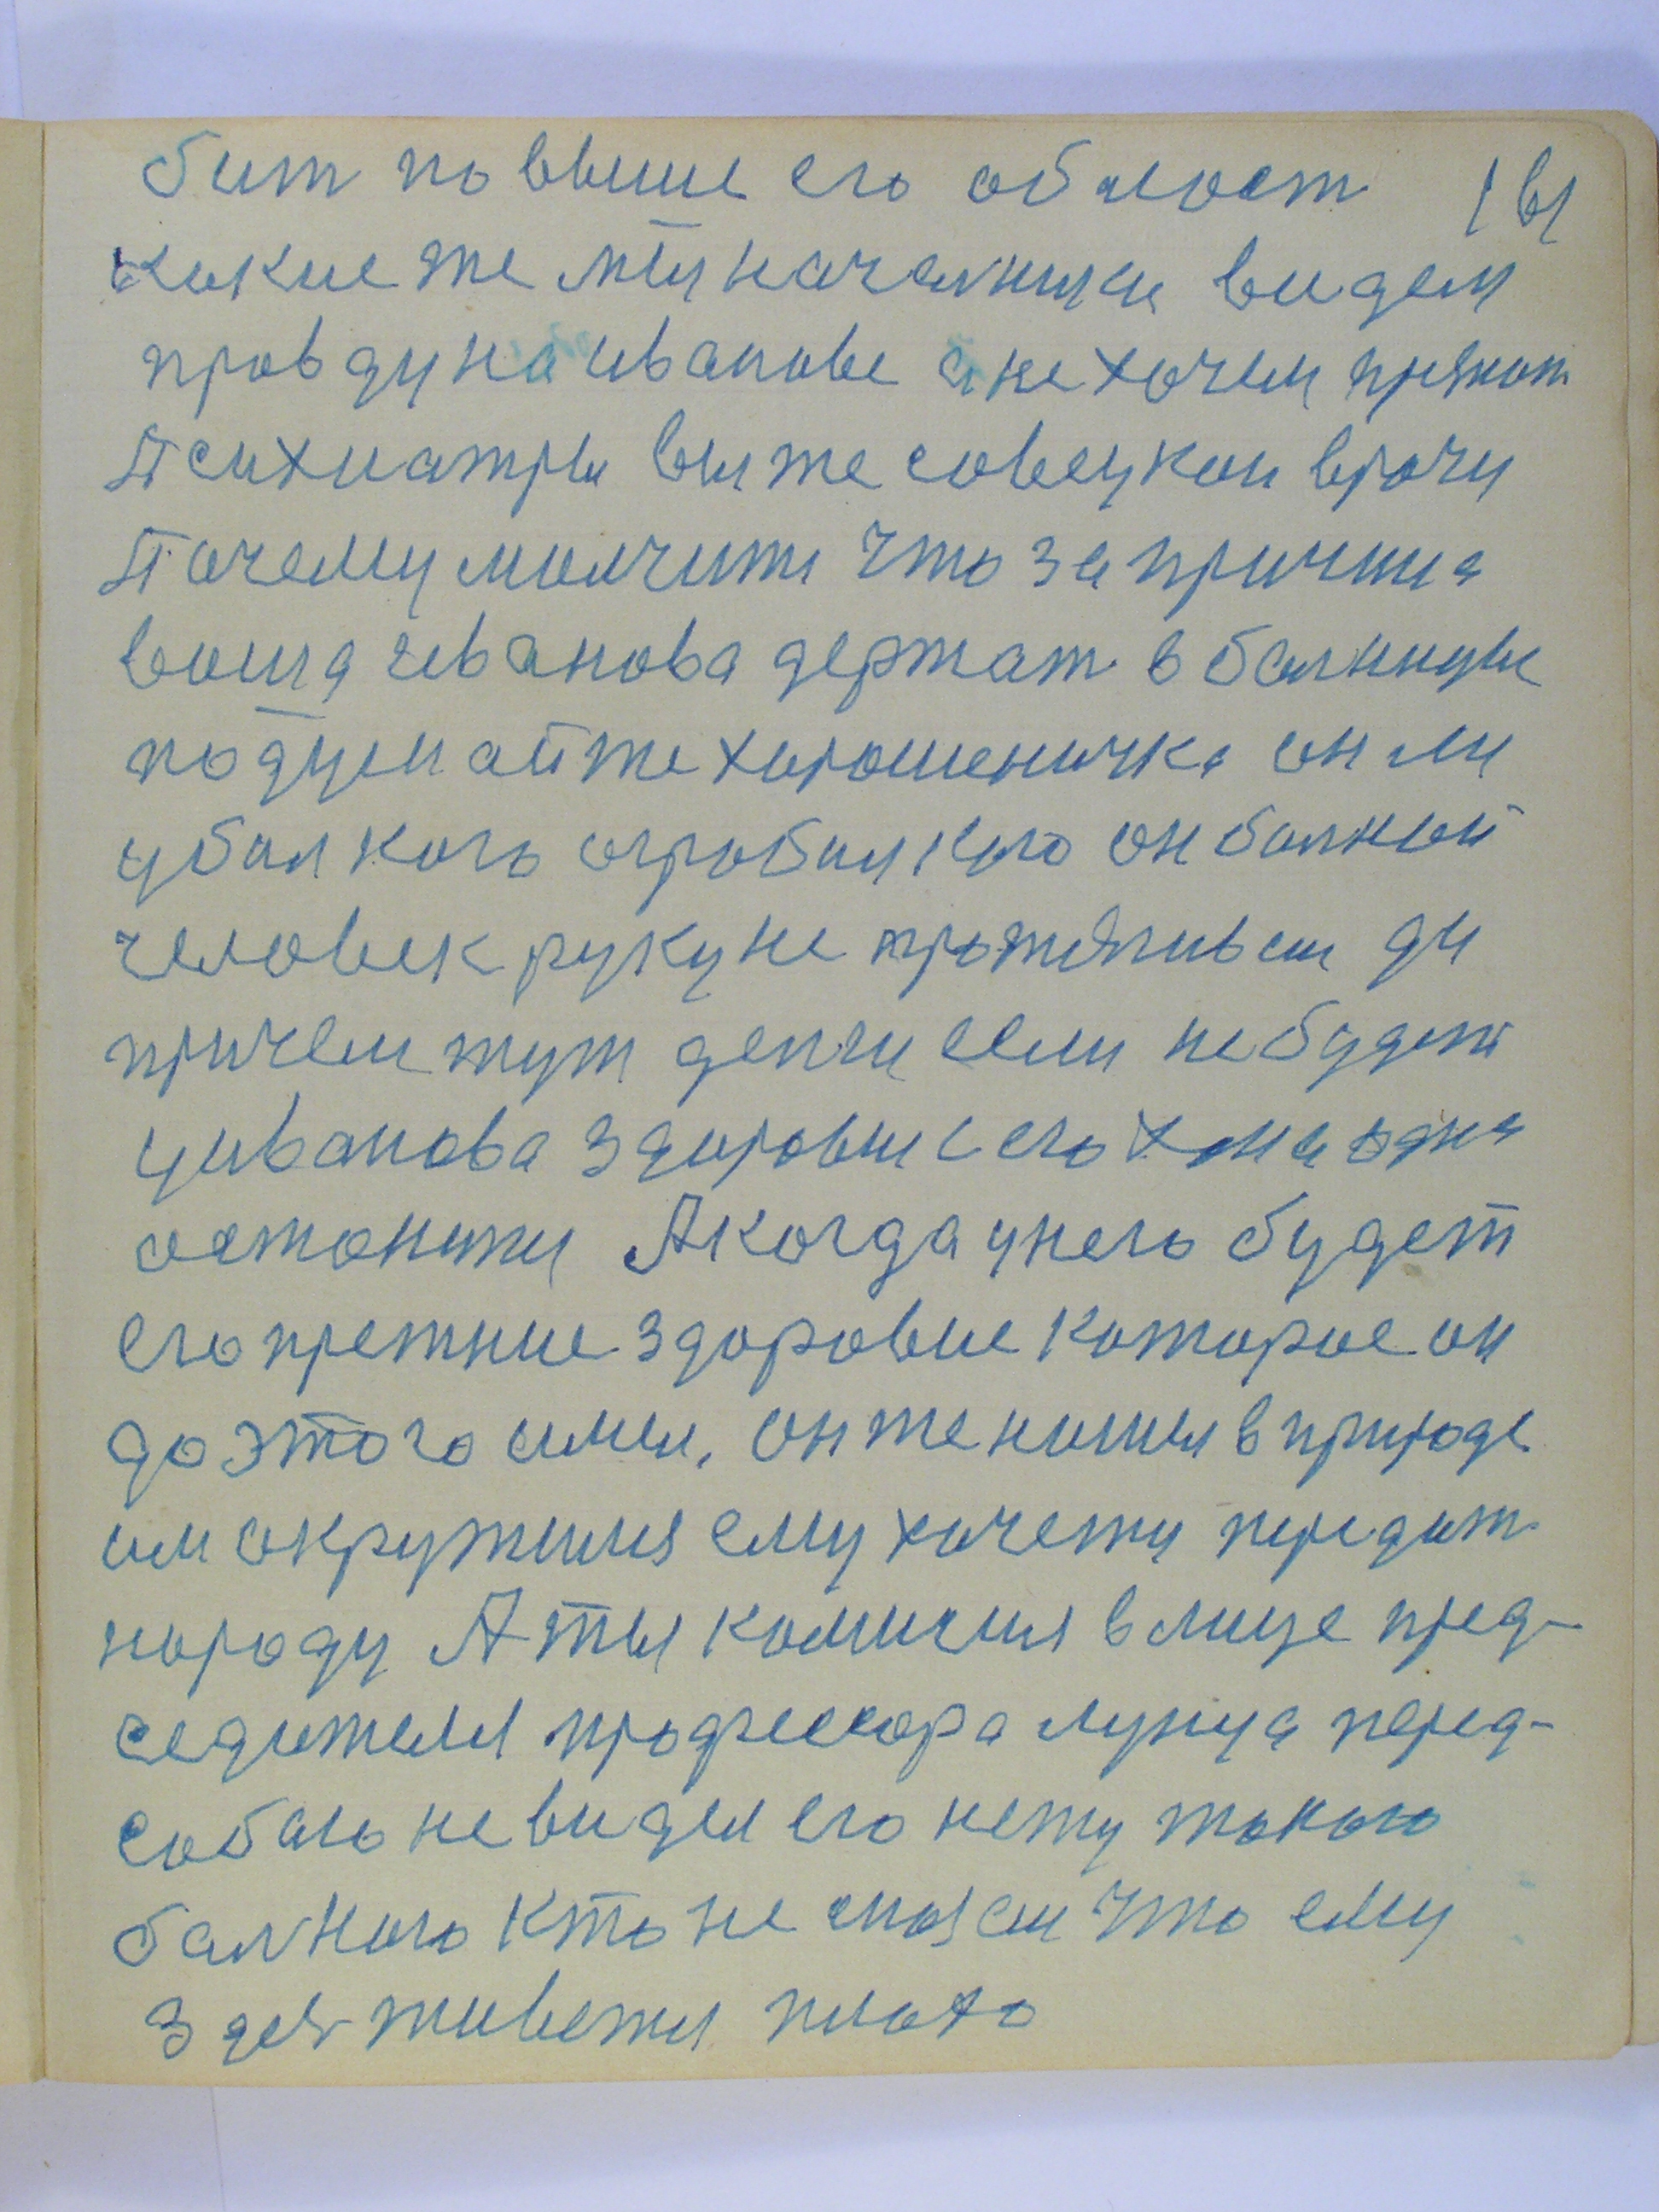 бит повыше его област 161
какие же мы началники видем
правду на иванове а не хочем принят
Психиатры вы же совецкои врачи
Почему молчити что за причина
ваша иванова держат в балницы
подумайте хорошеничка он ли
убил кого ограбил кого он балной
человек руку не протягиваи ди
причем тут денги если не будет
у иванова здоровие с его одна
останити А когда у него будет
его прежние здоровие которое он
до этого имел, он же нашел в природе
им окружился ему хочети передат
народу А ты комисия в лице пред-
седителя професора лунца перед-
собаю не видел его нету такого
балного кто не сказаи что ему
здес живети плохо